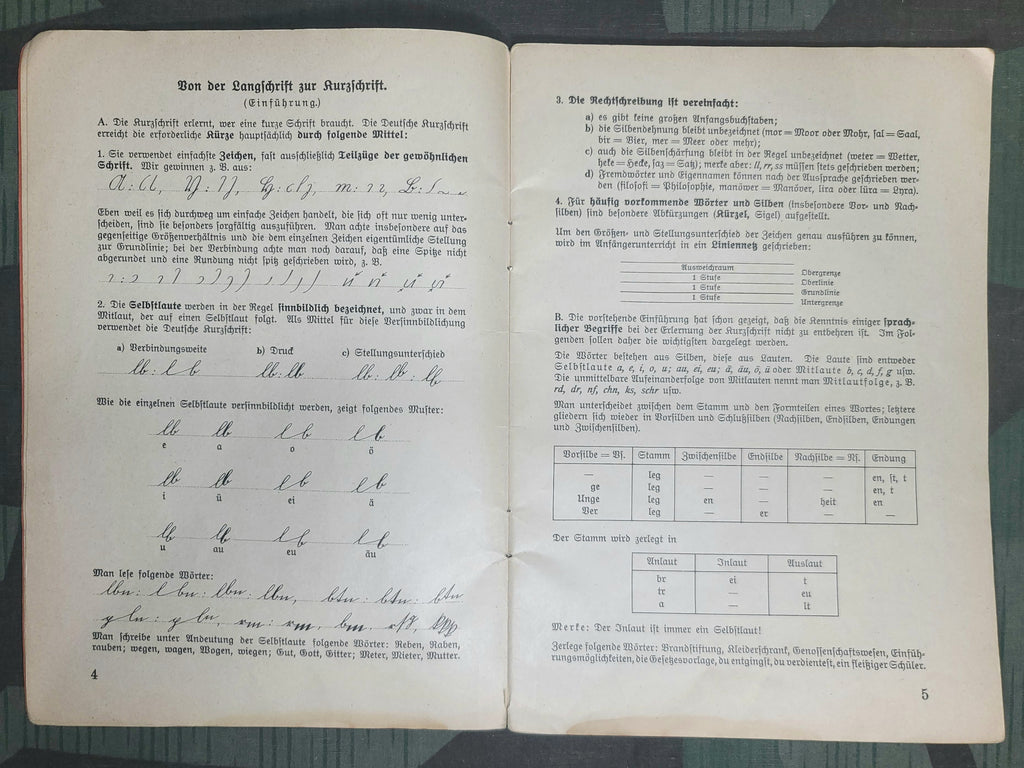 Von der Langschrift zur Kurzschrift.
(Einführung.)
A. Die Kurzschrift erlernt, wer eine kurze Schrift braucht. Die Deutsche Kurzschrift
erreicht die erforderliche Kürze hauptsächlich durch folgende Mittel:
1. Sie verwendet einfachste Zeichen, fast ausschließlich Teilzüge der gewöhnlichen
Schrift. Wir gewinnen z. B. aus:
Eben weil es sich durchweg um einfache Zeichen handelt, die sich oft nur wenig unter-
scheiden, sind sie besonders sorgfältig auszuführen. Man achte insbesondere auf das
gegenseitige Größenverhältnis und die dem einzelnen Zeichen eigentümliche Stellung
zur Grundlinie; bei der Verbindung achte man noch darauf, daß eine Spitze nicht
abgerundet und eine Rundung nicht spitz geschrieben wird, z. B.
2. Die Selbstlaute werden in der Regel sinnbildlich bezeichnet, und zwar in dem
Mitlaut, der auf einen Selbstlaut folgt. Als Mittel für diese Versinnbildlichung
verwendet die Deutsche Kurzschrift:
a) Verbindungsweite b) Druck c) Stellungsunterschied
Wie die einzelnen Selbstlaute versinnbildlicht werden, zeigt folgendes Muster:
e a o ö
i ü ei ä
u au eu äu
Man lese folgende Wörter:
Man schreibe unter Andeutung der Selbstlaute folgende Wörter: Reben, Raben,
rauben; wegen, wagen, Wogen, wiegen; Gut, Gott, Gitter; Meter, Mieter, Mutter.
4
3. Die Rechtschreibung ist vereinfacht:
a) es gibt keine großen Anfangsbuchstaben;
b) die Silbendehnung bleibt unbezeichnet (mor = Moor oder Mohr, sal = Saal,
bir = Bier, mer = Meer oder mehr);
c) auch die Silbenschärfung bleibt in der Regel unbezeichnet (weter = Wetter,
heke = Hecke, saz = Satz); merke aber: ll, rr, ss müssen stets geschrieben werden;
d) Fremdwörter und Eigennamen können nach der Aussprache geschrieben wer-
den (filosofi = Philosophie, manöwer = Manöver, lira oder lüra = Lyra).
4. Für häufig vorkommende Wörter und Silben (insbesondere Vor- und Nach-
silben) sind besondere Abkürzungen (Kürzel, Sigel) aufgestellt.
Um den Größen- und Stellungsunterschied der Zeichen genau ausführen zu können,
wird im Anfängerunterricht in ein Liniennetz geschrieben:
Ausweichraum Obergrenze
1 Stufe Oberlinie
1 Stufe Grundlinie
1 Stufe Untergrenze
B. Die vorstehende Einführung hat schon gezeigt, daß die Kenntnis einiger sprach-
licher Begriffe bei der Erlernung der Kurzschrift nicht zu entbehren ist. Im Fol-
genden sollen daher die wichtigsten dargelegt werden.
Die Wörter bestehen aus Silben, diese aus Lauten. Die Laute sind entweder
Selbstlaute a, e, i, o, u; au, ei, eu; ä, äu, ö, ü oder Mitlaute b, c, d, f, g usw.
Die unmittelbare Aufeinanderfolge von Mitlauten nennt man Mitlautfolge, z. B.
rd, dr, nf, chn, ks, schr usw.
Man unterscheidet zwischen dem Stamm und den Formteilen eines Wortes; letztere
gliedern sich wieder in Vorsilben und Schlußsilben (Nachsilben, Endsilben, Endungen
und Zwischensilben).
Vorsilbe = Vs. Stamm Zwischensilbe Endsilbe Nachsilbe = Ns. Endung
— leg — — — en, st, t
ge leg — — — en, t
Unge leg en — heit en
Ver leg — er — —
Der Stamm wird zerlegt in
Anlaut Inlaut Auslaut
br ei t
tr — eu
a — lt
Merke: Der Inlaut ist immer ein Selbstlaut!
Zerlege folgende Wörter: Brandstiftung, Kleiderschrank, Genossenschaftswesen, Einfüh-
rungsmöglichkeiten, die Gesetzesvorlage, du entgingst, du verdientest, ein fleißiger Schüler.
5